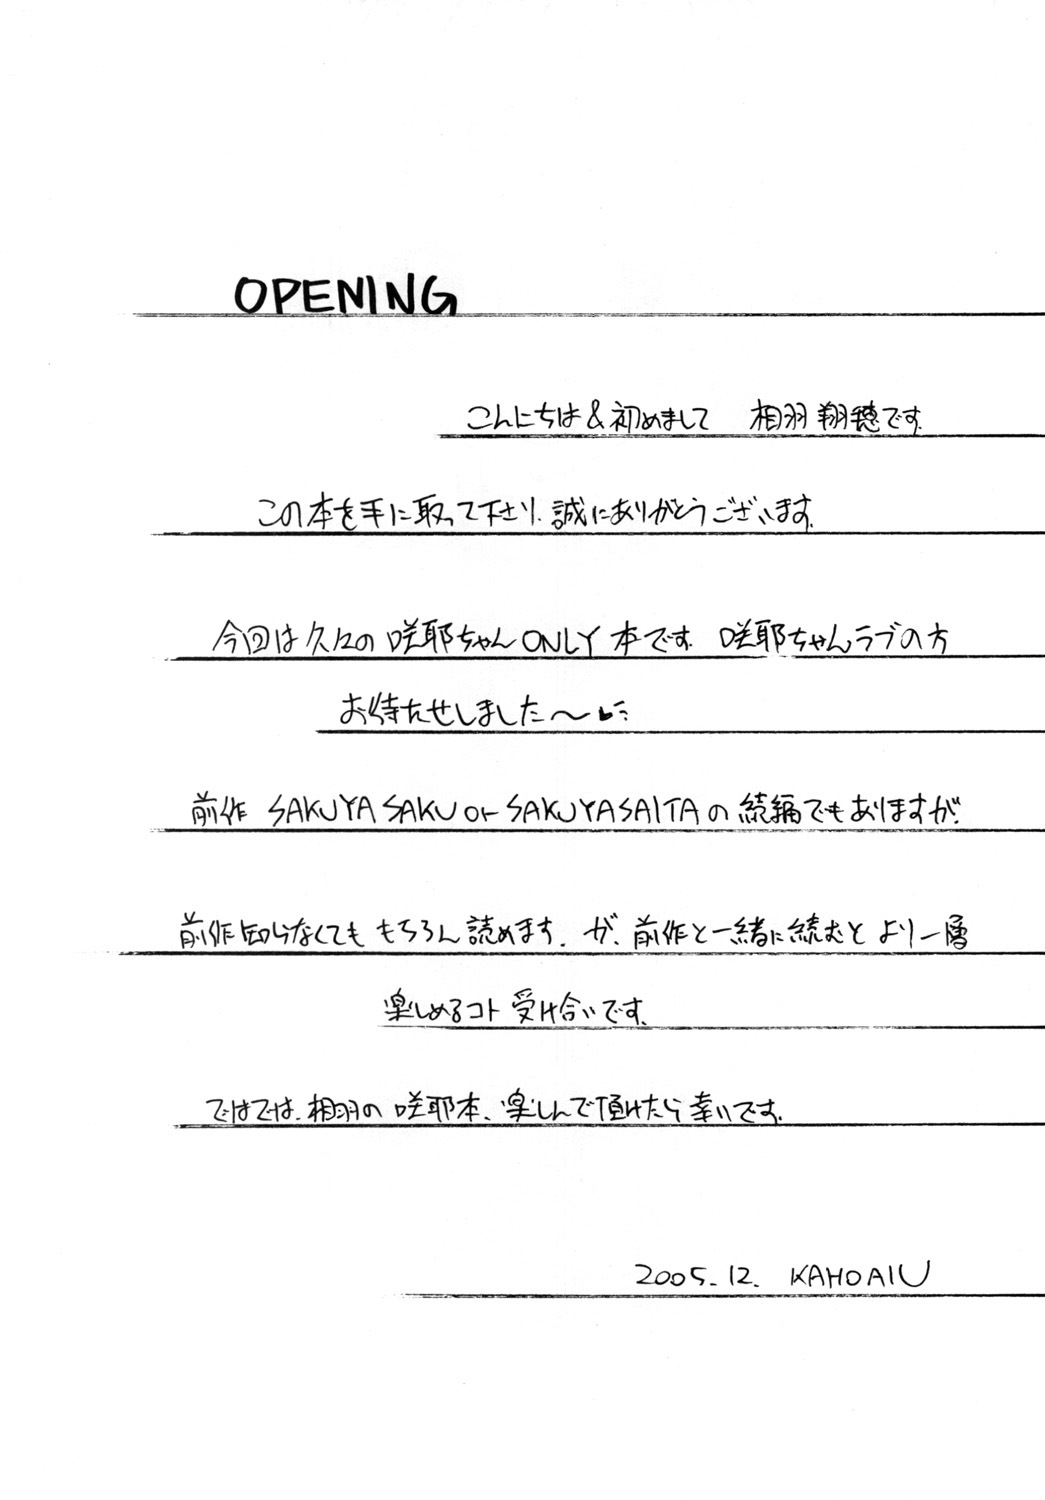 OPENING
こんにちは&初めまして 相羽翔穂です。
この本を手に取って下さり、誠にありがとうございます。
今回は久々の咲耶ちゃんONLY本です。咲耶ちゃんラブの方
お待たせしました〜
前作 SAKUYA SAKU or SAKUYASAITAの続編でもありますが、
前作知らなくても もちろん読めます。が、前作と一緒に続むと より一層
楽しめるコト 受け合いです。
ではでは、相羽の 咲耶本、楽しんで頂けたら幸いです。
2005.12. KAHO AIU